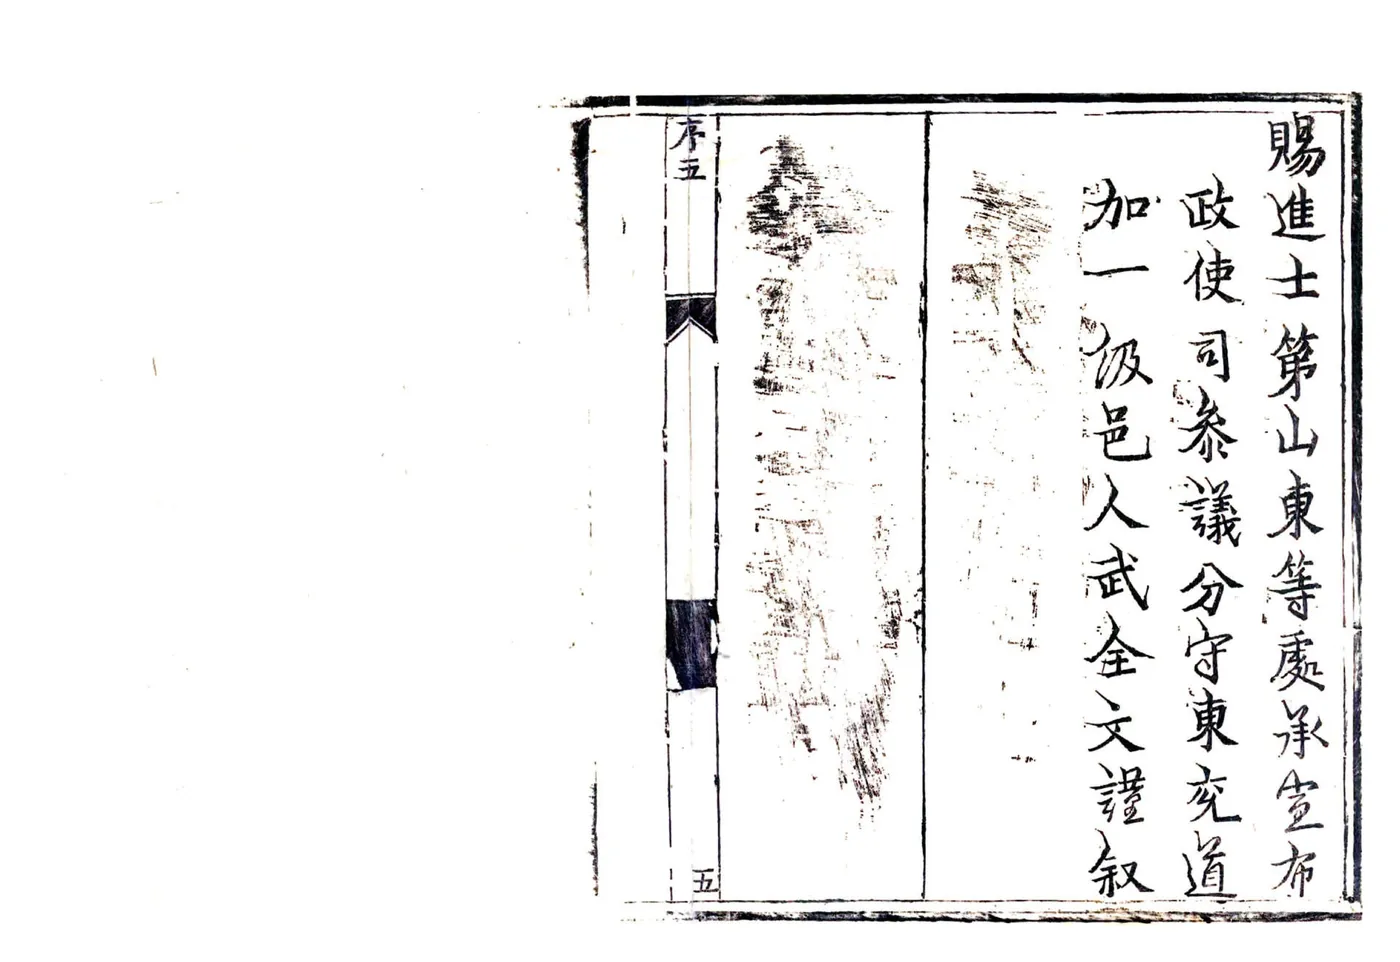 賜進士第山東等處承宣布
政使司叅議分守東兖道
加一級邑人武全文謹叙
序五
五